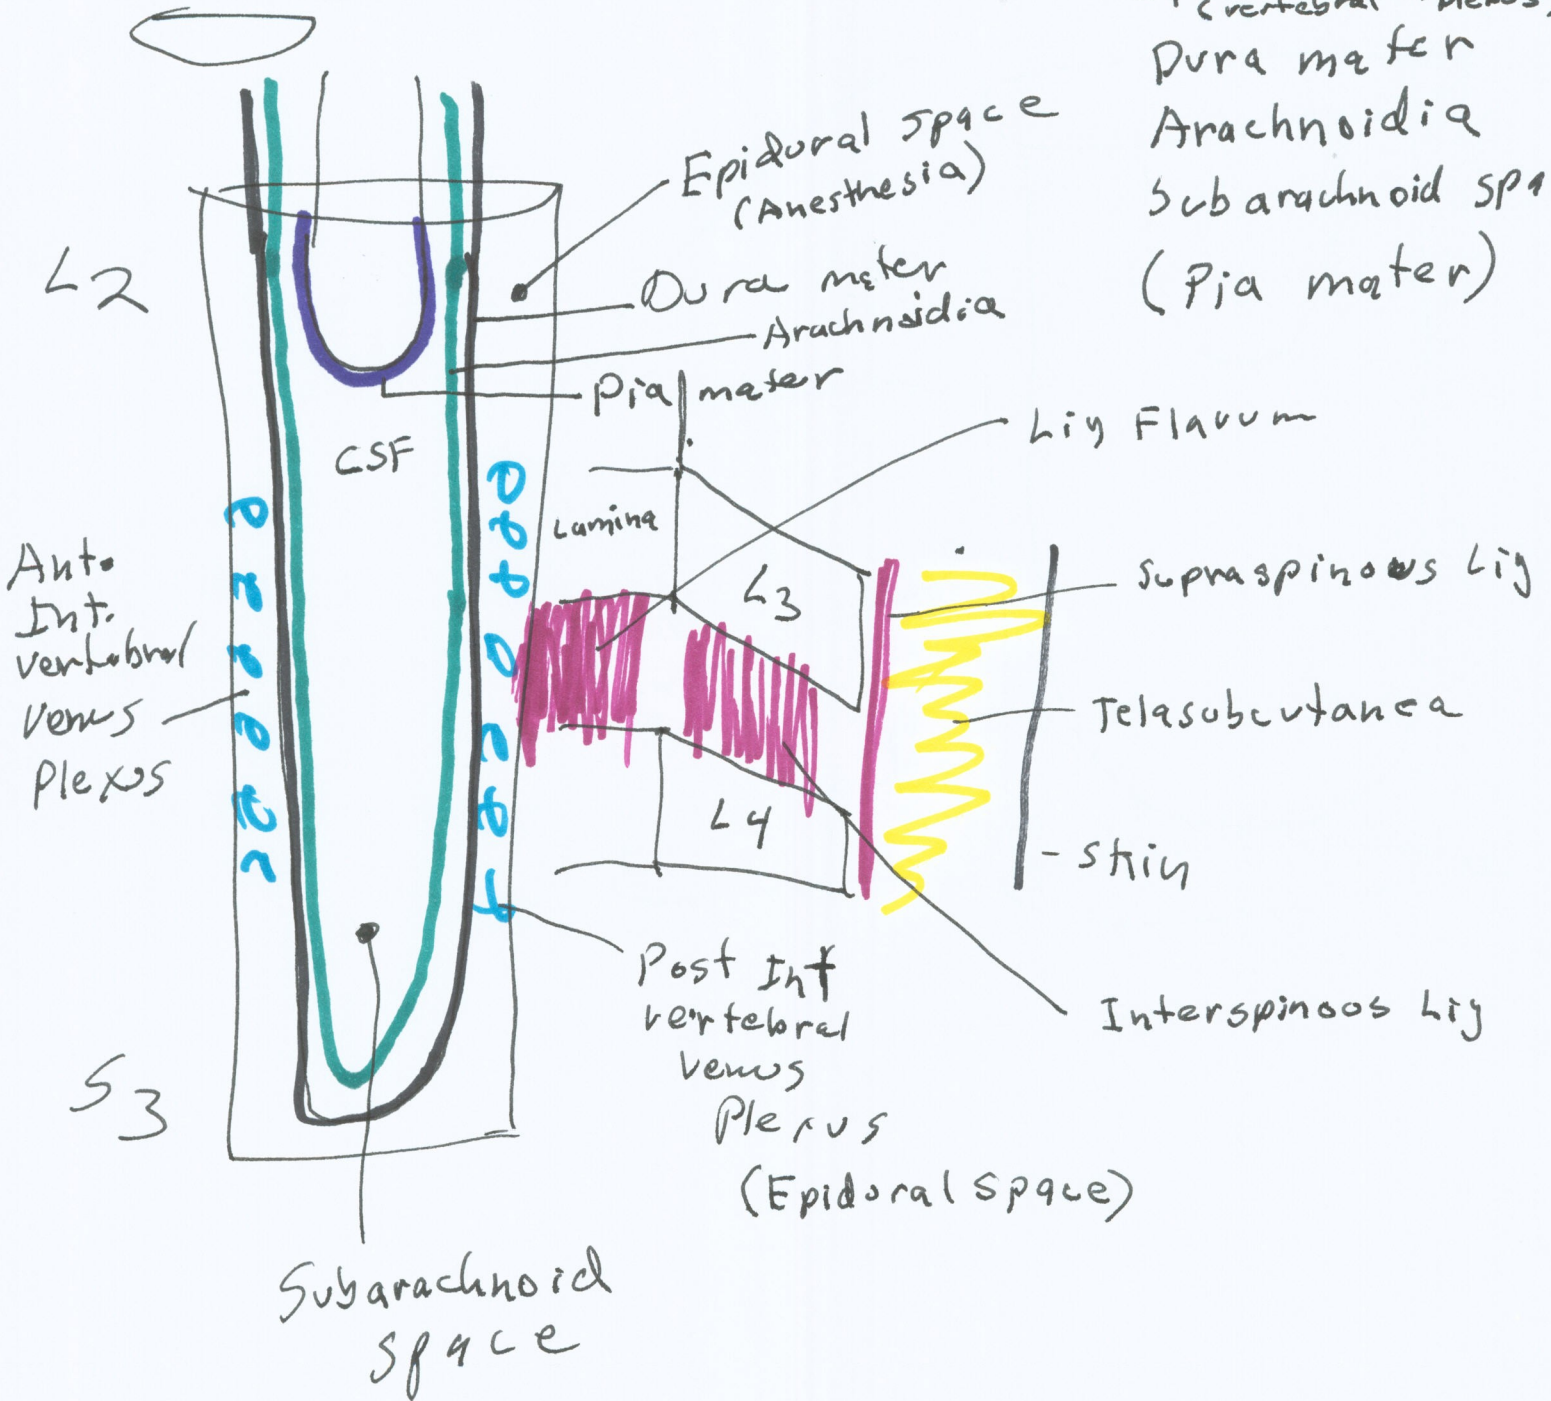 (vertebral Plexus)
Dura mater
Arachnoidia
Subarachnoid spa
(Pia mater)
Epidural space
(Anesthesia)
L2
Dura mater
Arachnoidia
Pia mater
Lig Flavum
CSF
Lamina
Ant.
Int.
vertebral
venus
Plexus
L3
Supraspinous Lig
Telasubcutanea
L4
- Skin
Post Int
vertebral
venus
Plexus
(Epidural space)
Interspinous Lig
S3
Subarachnoid
space